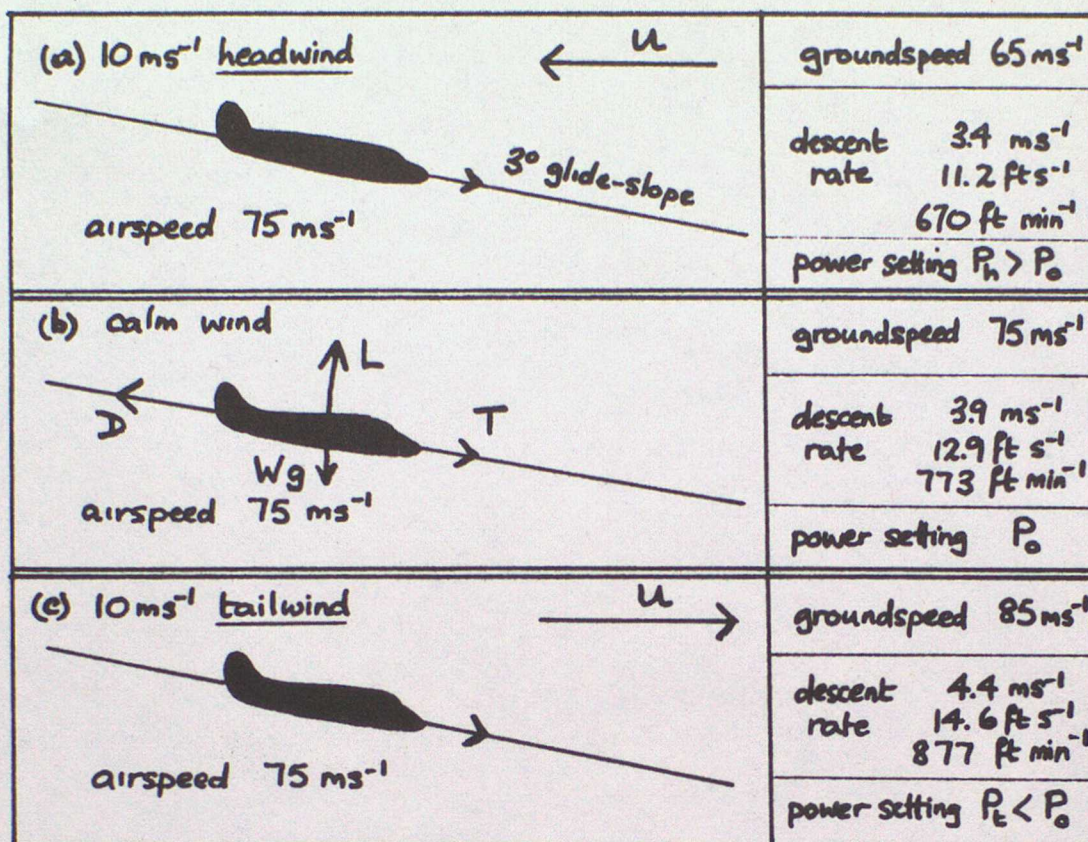 (a) 10 ms⁻¹ headwind
u
3° glide-slope
airspeed 75 ms⁻¹
groundspeed 65 ms⁻¹
descent 3.4 ms⁻¹
rate 11.2 ft s⁻¹
670 ft min⁻¹
power setting Pₕ > P₀
(b) calm wind
L
D
T
Wg
airspeed 75 ms⁻¹
groundspeed 75 ms⁻¹
descent 3.9 ms⁻¹
rate 12.9 ft s⁻¹
773 ft min⁻¹
power setting P₀
(c) 10 ms⁻¹ tailwind
u
airspeed 75 ms⁻¹
groundspeed 85 ms⁻¹
descent 4.4 ms⁻¹
rate 14.6 ft s⁻¹
877 ft min⁻¹
power setting Pₜ < P₀